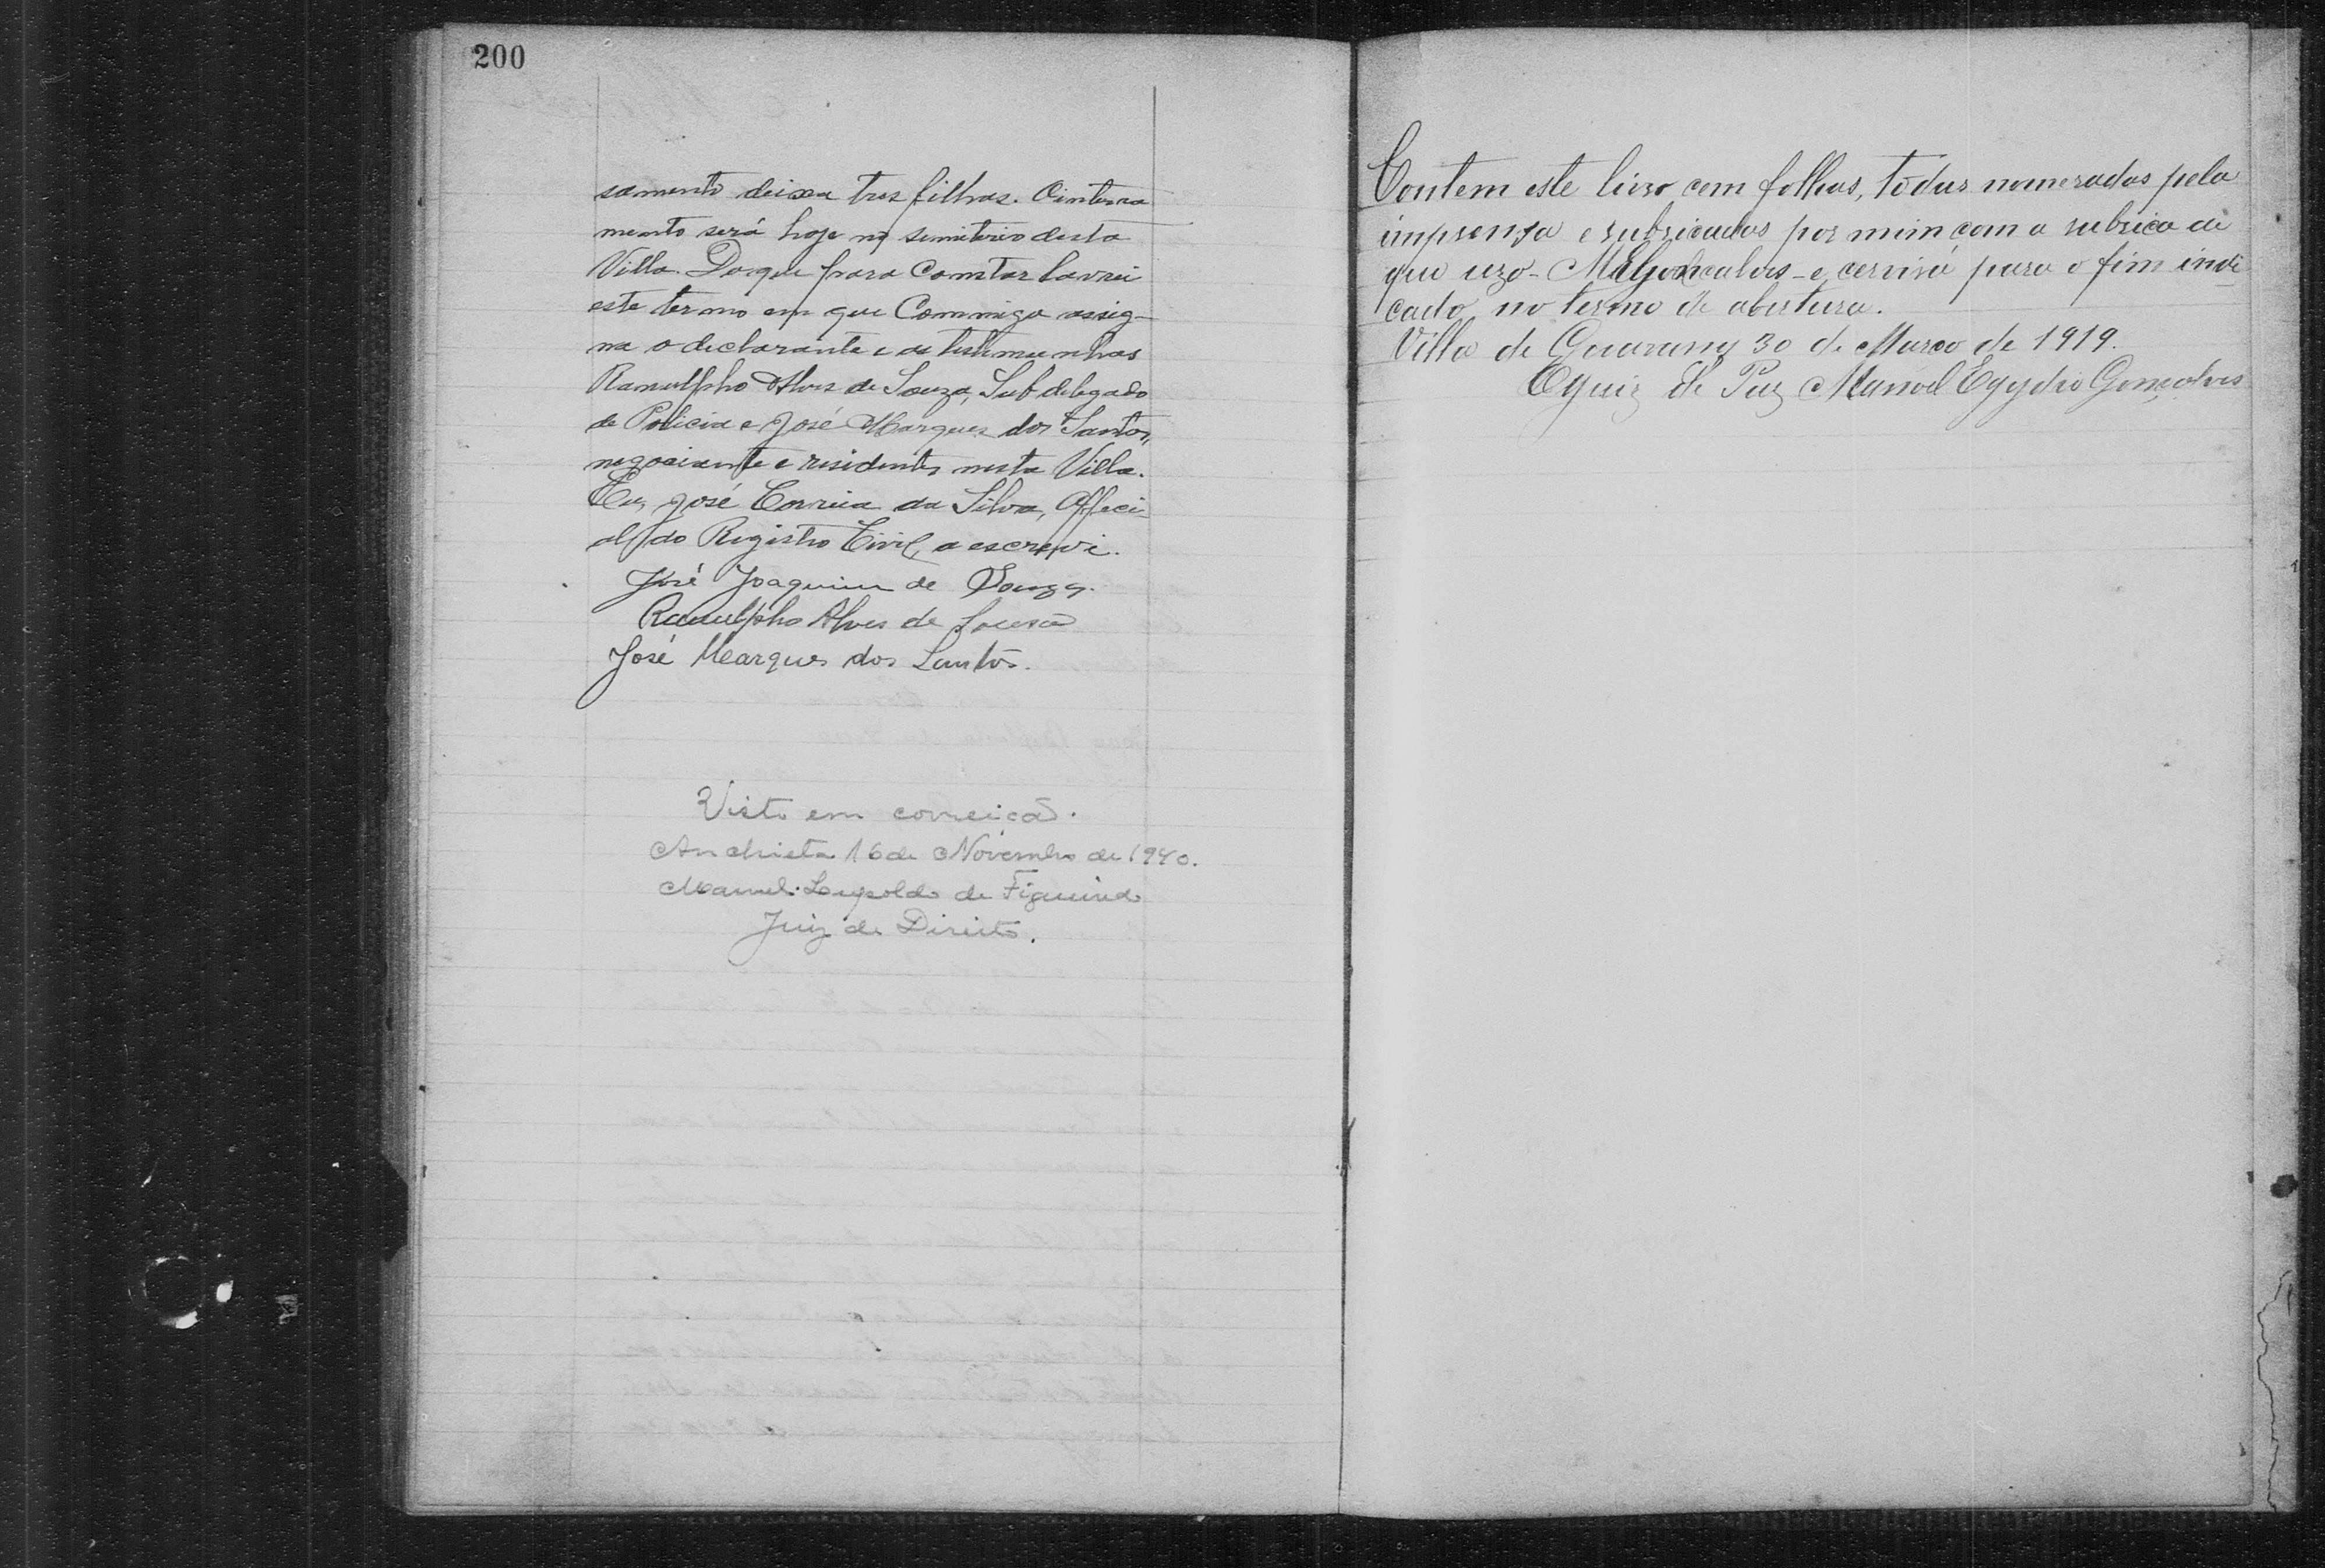 200
samento deixa tres filhos. O interra
mento será hoje no semiterio desta
Villa. Do que para Comstar lavrei
este termo em que Commigo assig-
na o declarante e as testimunhas
Ranulpho Alves de Souza, Sub delegado
de Policia e José Marques dos Santos,
negociante e residentes nesta Villa.
Eu, José Correia da Silva, Offeci-
al do Registro Civil, o escrevi.
José Joaquim de Souza.
Ranulpho Alves de Sousa
José Marques dos Santos.
Visto em correição.
Anchieta 16 de Novembro de 1940.
Manuel Leopoldo de Figueiredo
Juiz de Direito.
Contem este livro cem folhas, todas nomeradas pela
imprensa e rubricadas por mim com a rubrica de
que uzo - MEGonçalves - e cervirá para o fim indi
cado no termo de abertura.
Villa de Guarany 30 de Março de 1919.
O Juiz de Paz Manoel Egydio Gonçalves